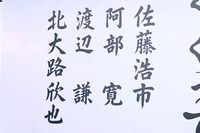 佐藤浩市
阿部 寛
渡辺 謙
北大路欣也